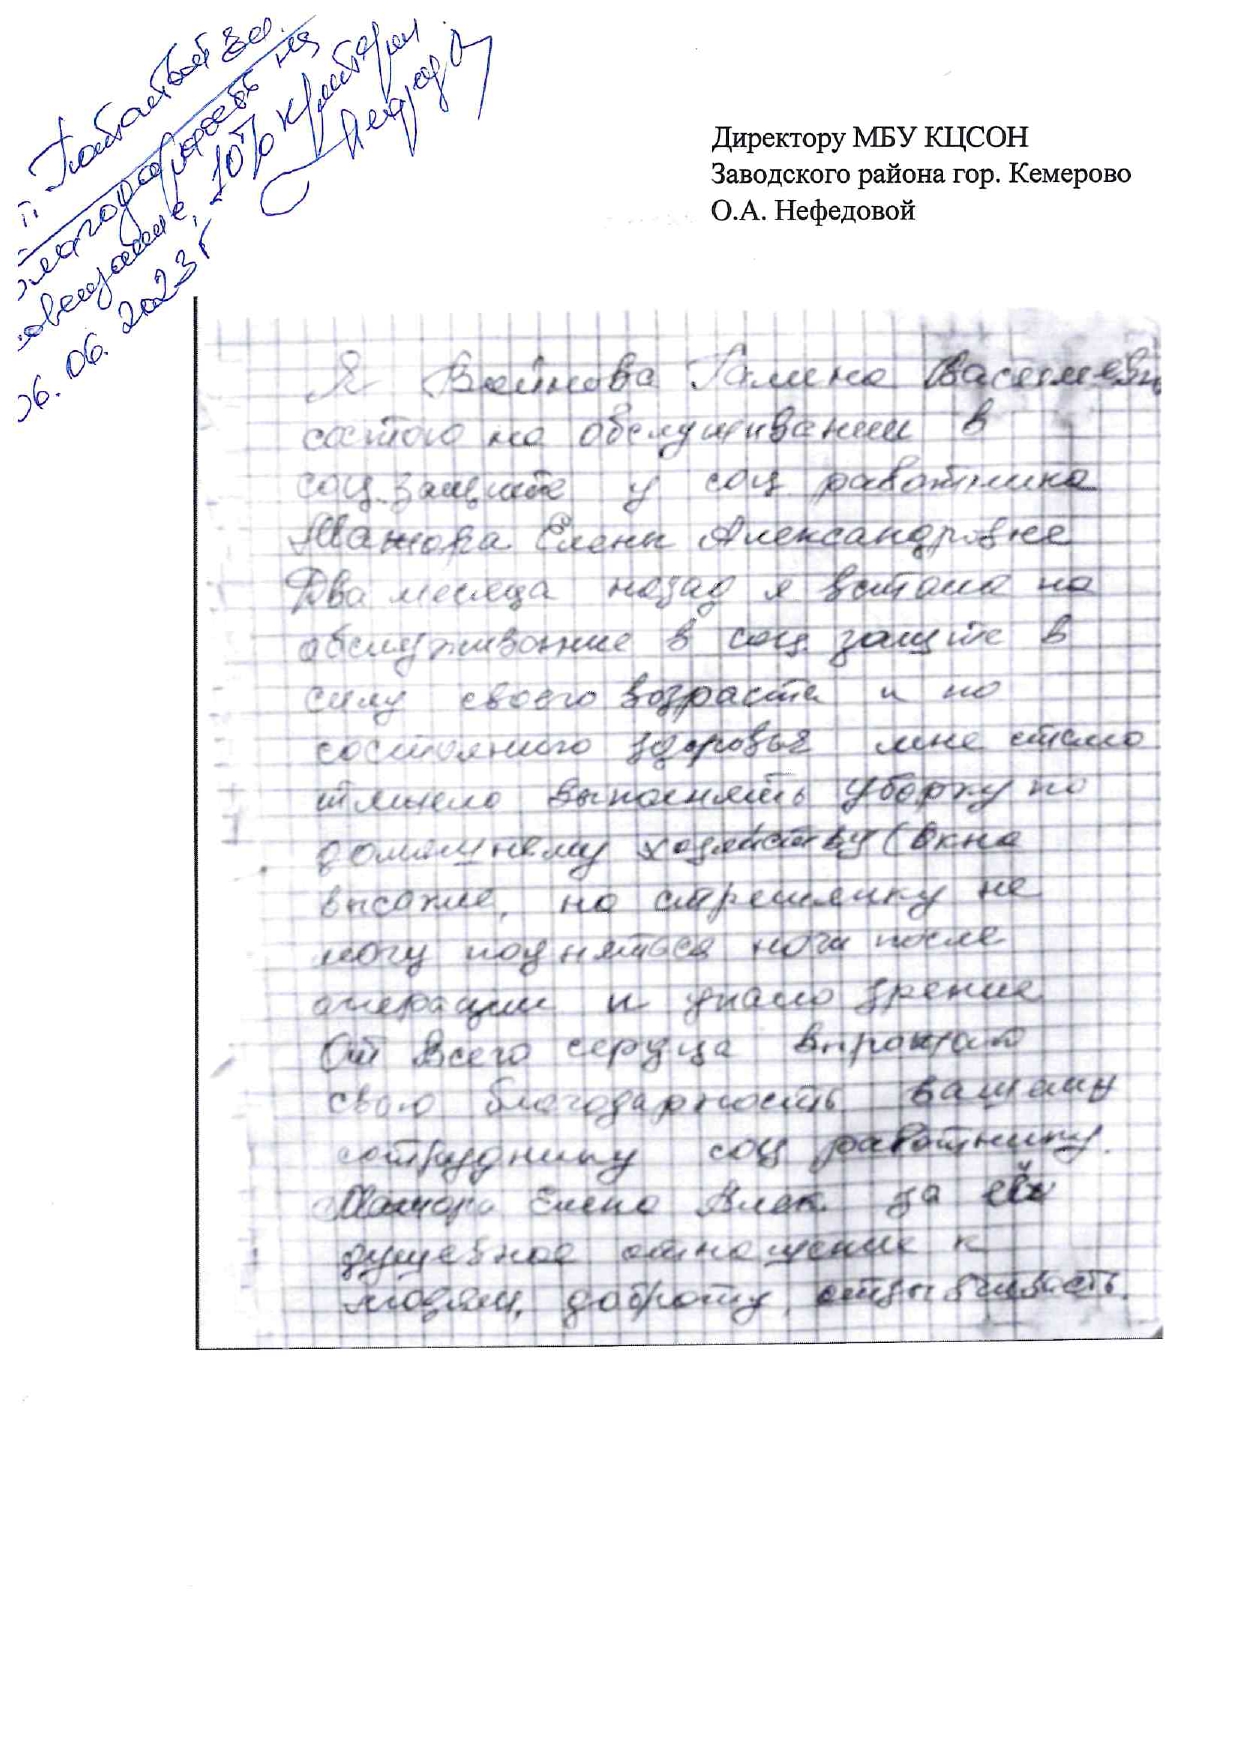 Директору МБУ КЦСОН
Заводского района гор. Кемерово
О.А. Нефедовой
благодарность на
10% критерии
06. 2023 г
Я Галина
состою на обслуживании в
соц. защите у соц работника
Елены Александровне
Два месяца назад я встала на
обслуживание в соц. защите в
силу своего возраста и по
состоянию здоровья мне стало
тяжело выполнять уборку по
домашнему хозяйству (окна
высокие, на стремянку не
могу подняться ноги после
операции и упало зрение
От всего сердца выражаю
свою благодарность вашему
сотруднику соц работнику.
Елена Алек. за её
душевное отношение к
людям, доброту, отзывчивость.